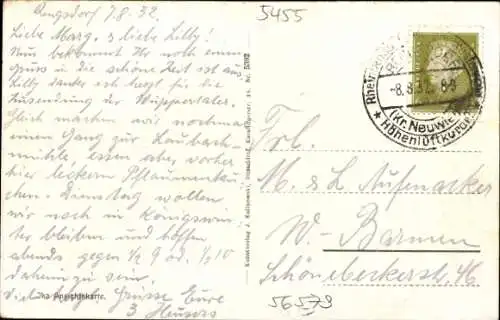 Rengsdorf 7.8.32.
Liebe Marg. & liebe Lilly!
Nun bekommt Ihr noch einen
Gruss u. die schöne Zeit ist aus
Lilly danke ich herzl. für die
Zusendung der Wuppertaler.
Gleich machen wir nochmal
einen Gang zur Laubach-
mühle, essen aber vorher
hier leckern Pflaumenku-
chen. Dienstag wollen
wir noch in Königswin-
ter bleiben und hoffen
abends gegen ½ 9 od. ½ 10
daheim zu sein
Viele Grüsse Eure
3 Heusers
Ansichtskarte.
5455
Rhein
-8.8.32. 8-9
(Kr. Neuwied)
★ Höhenluftkurort ★
Frl.
M. & L. Aufenacker
W.-Barmen
Schönebeckerstr. 16
56573